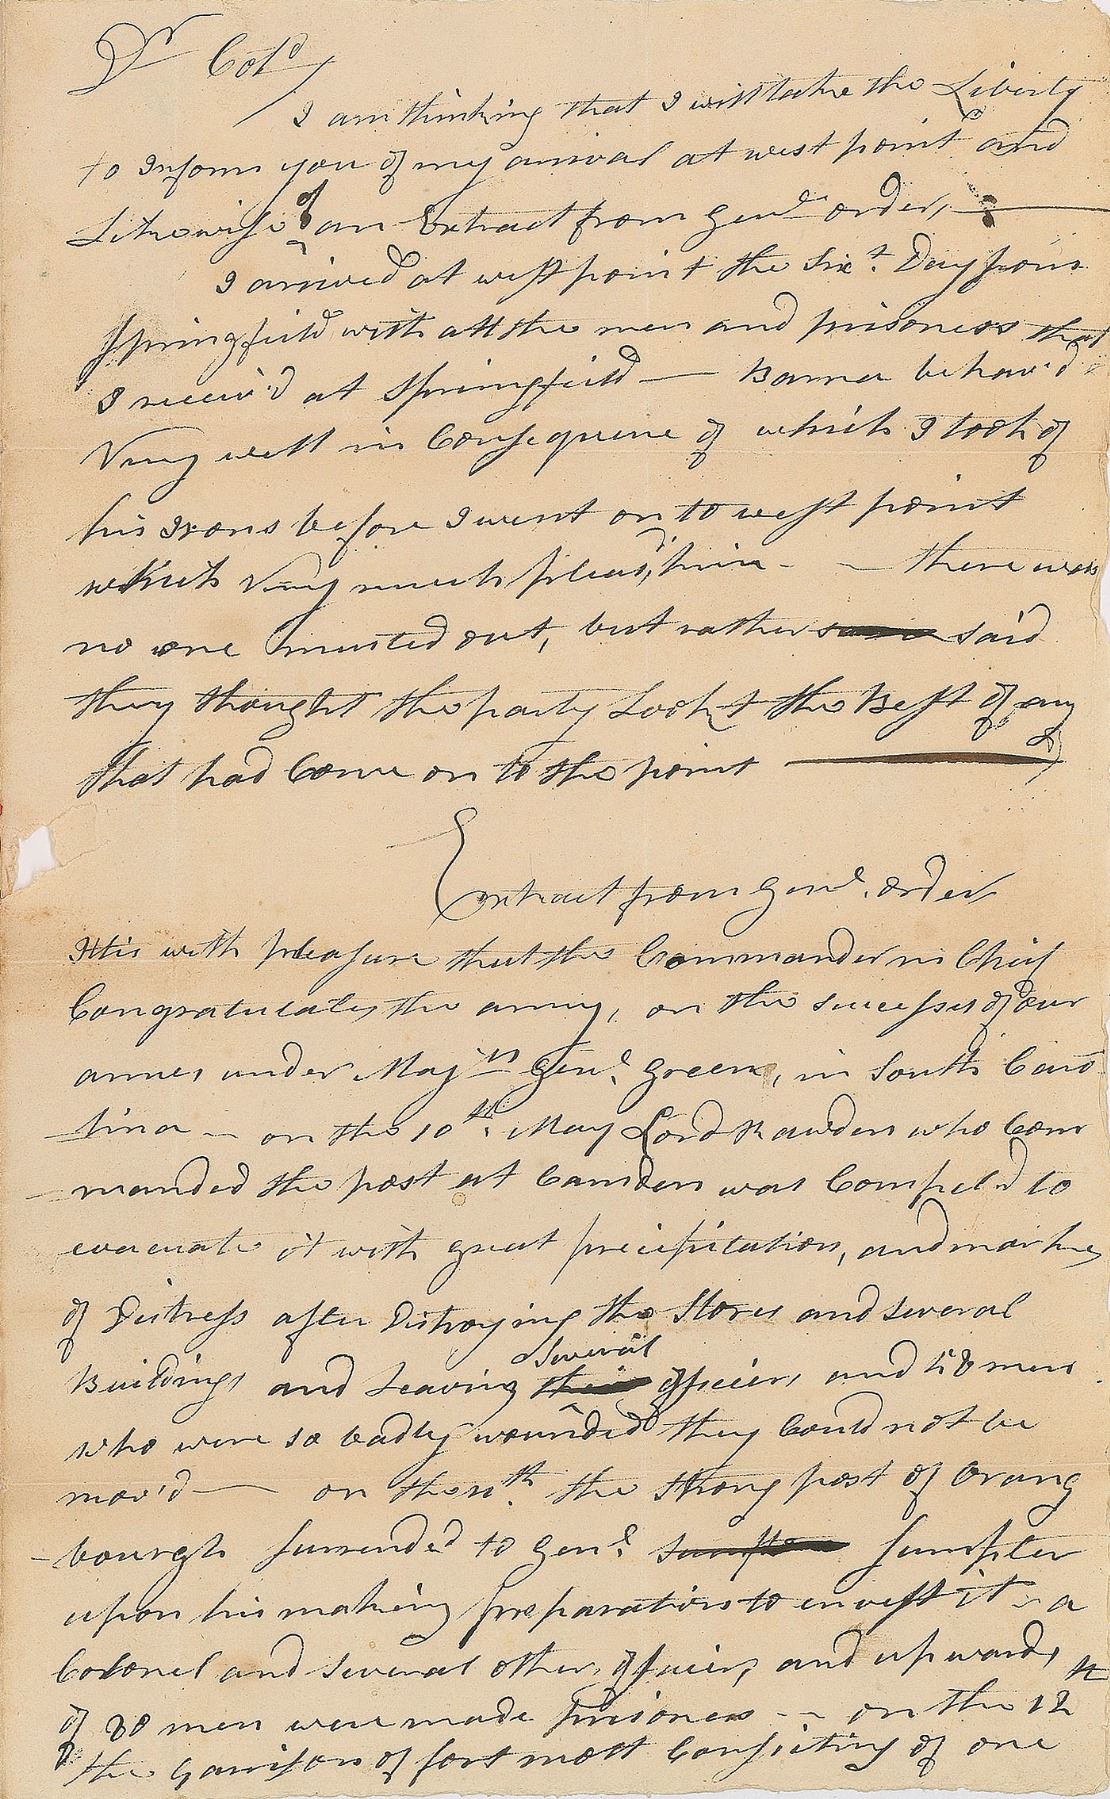 Dr Colo
I am thinking that I will take the Liberty
to Inform you of my arival at west point and
Likewise of an Extract from Genl order,
I arrived at west point the Sixt. Day from
Springfield with all the men and prisoners that
I receiv'd at Springfield — behav'd
Very well in Consequence of which I took of
his Irons before I went on to west point
which Very much pleasd him - - there was
no one musted out, but rather said
they thought the party Lookt the Best of any
that had Come on to the point
Extract from Genl. order
It is with pleasure that the Commander in Chief
Congratulates the army, on the successes of our
armes under Majrr Genl. Green, in South Caro
lina — on the 10th. May Lord Rawden who Com
manded the post at Camden was Compeld to
evacuate it with great precipitation, and markes
of Distress after Distroying the Stores and several
Buildings and Leaving several officers and 58 men
who were so badly wounded they Could not be
mov'd — on the 11th. the Strong post of Orang
bourgh Surrended to Genl. Sumpter
upon his making preparations to invest it - a
Colonel and several other, officers, and upwards
of 80 men were made prisoners - - on the 12th
the Garrison of fort mott Consisting of one